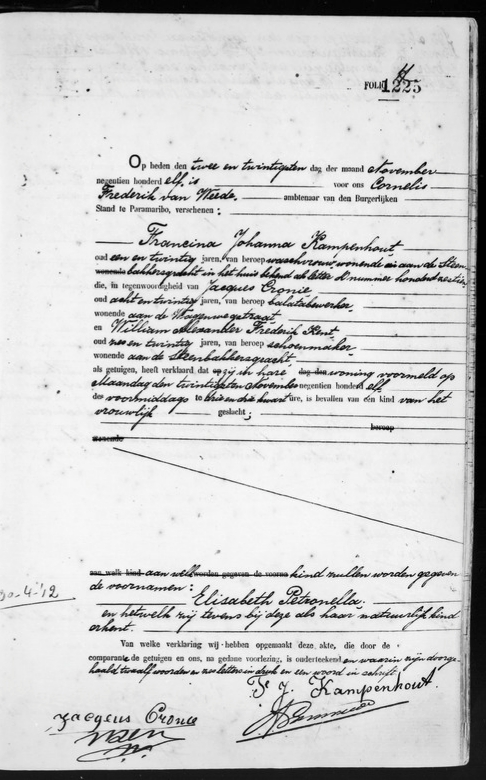 FOLIO 1225
Op heden den twee en twintigsten dag der maand November
negentien honderd elf, is voor ons Cornelis
Frederik van Weede, ambtenaar van den Burgerlijken
Stand te Paramaribo, verschenen:
Francina Johanna Kampenhout
oud een en twintig jaren, van beroep waschvrouw, wonende aan de Steen
bakkersgracht in het huis bekend als letter D nummer honderd
die, in tegenwoordigheid van Jacques Cronie
oud acht en twintig jaren, van beroep balatabewerker
wonende aan de Wagenwegstraat
en William Alexander Frederik Kent
oud en twintig jaren, van beroep schoenmaker
wonende aan de Steenbakkersgracht
als getuigen, heeft verklaard dat zij in hare woning voormeld op
Maandag den twintigsten November negentien honderd elf
des voormiddags te drie en drie kwart ure, is bevallen van één kind van het
vrouwlijk geslacht;
beroep
wonende
aan welk kind aan welk worden gegeven de voorna kind zullen worden gegeven
de voornamen: Elisabeth Petronella
30-4-'12
en hetwelk zij tevens bij deze als haar natuurlijk kind
erkent.
Van welke verklaring wij hebben opgemaakt deze akte, die door de
comparante, de getuigen en ons, na gedane voorlezing, is onderteekend en waarin zijn doorge
haald twaalf woorden en zes letters in druk en een woord in schrift.
F. J. Kampenhout.
Jacques Cronie